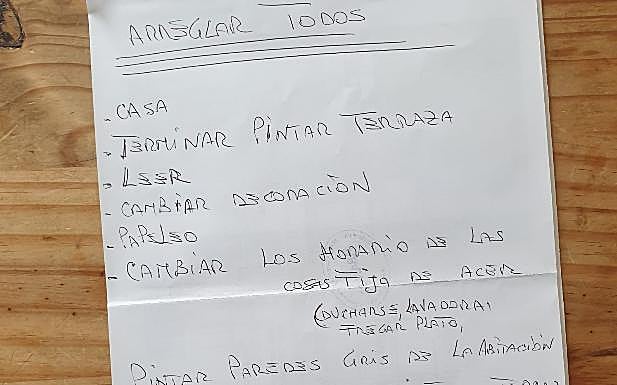 ARREGLAR TODOS
- CASA
- TERMINAR PINTAR TERRAZA
- LEER
- CAMBIAR DECORACIÓN
- PAPELEO
- CAMBIAR LOS HORARIO DE LAS
COSAS TIJA DE ACER
(DUCHARSE, LAVADORA,
TREGAR PLATO,
PINTAR PAREDES GRIS DE LA ABITACIÓN